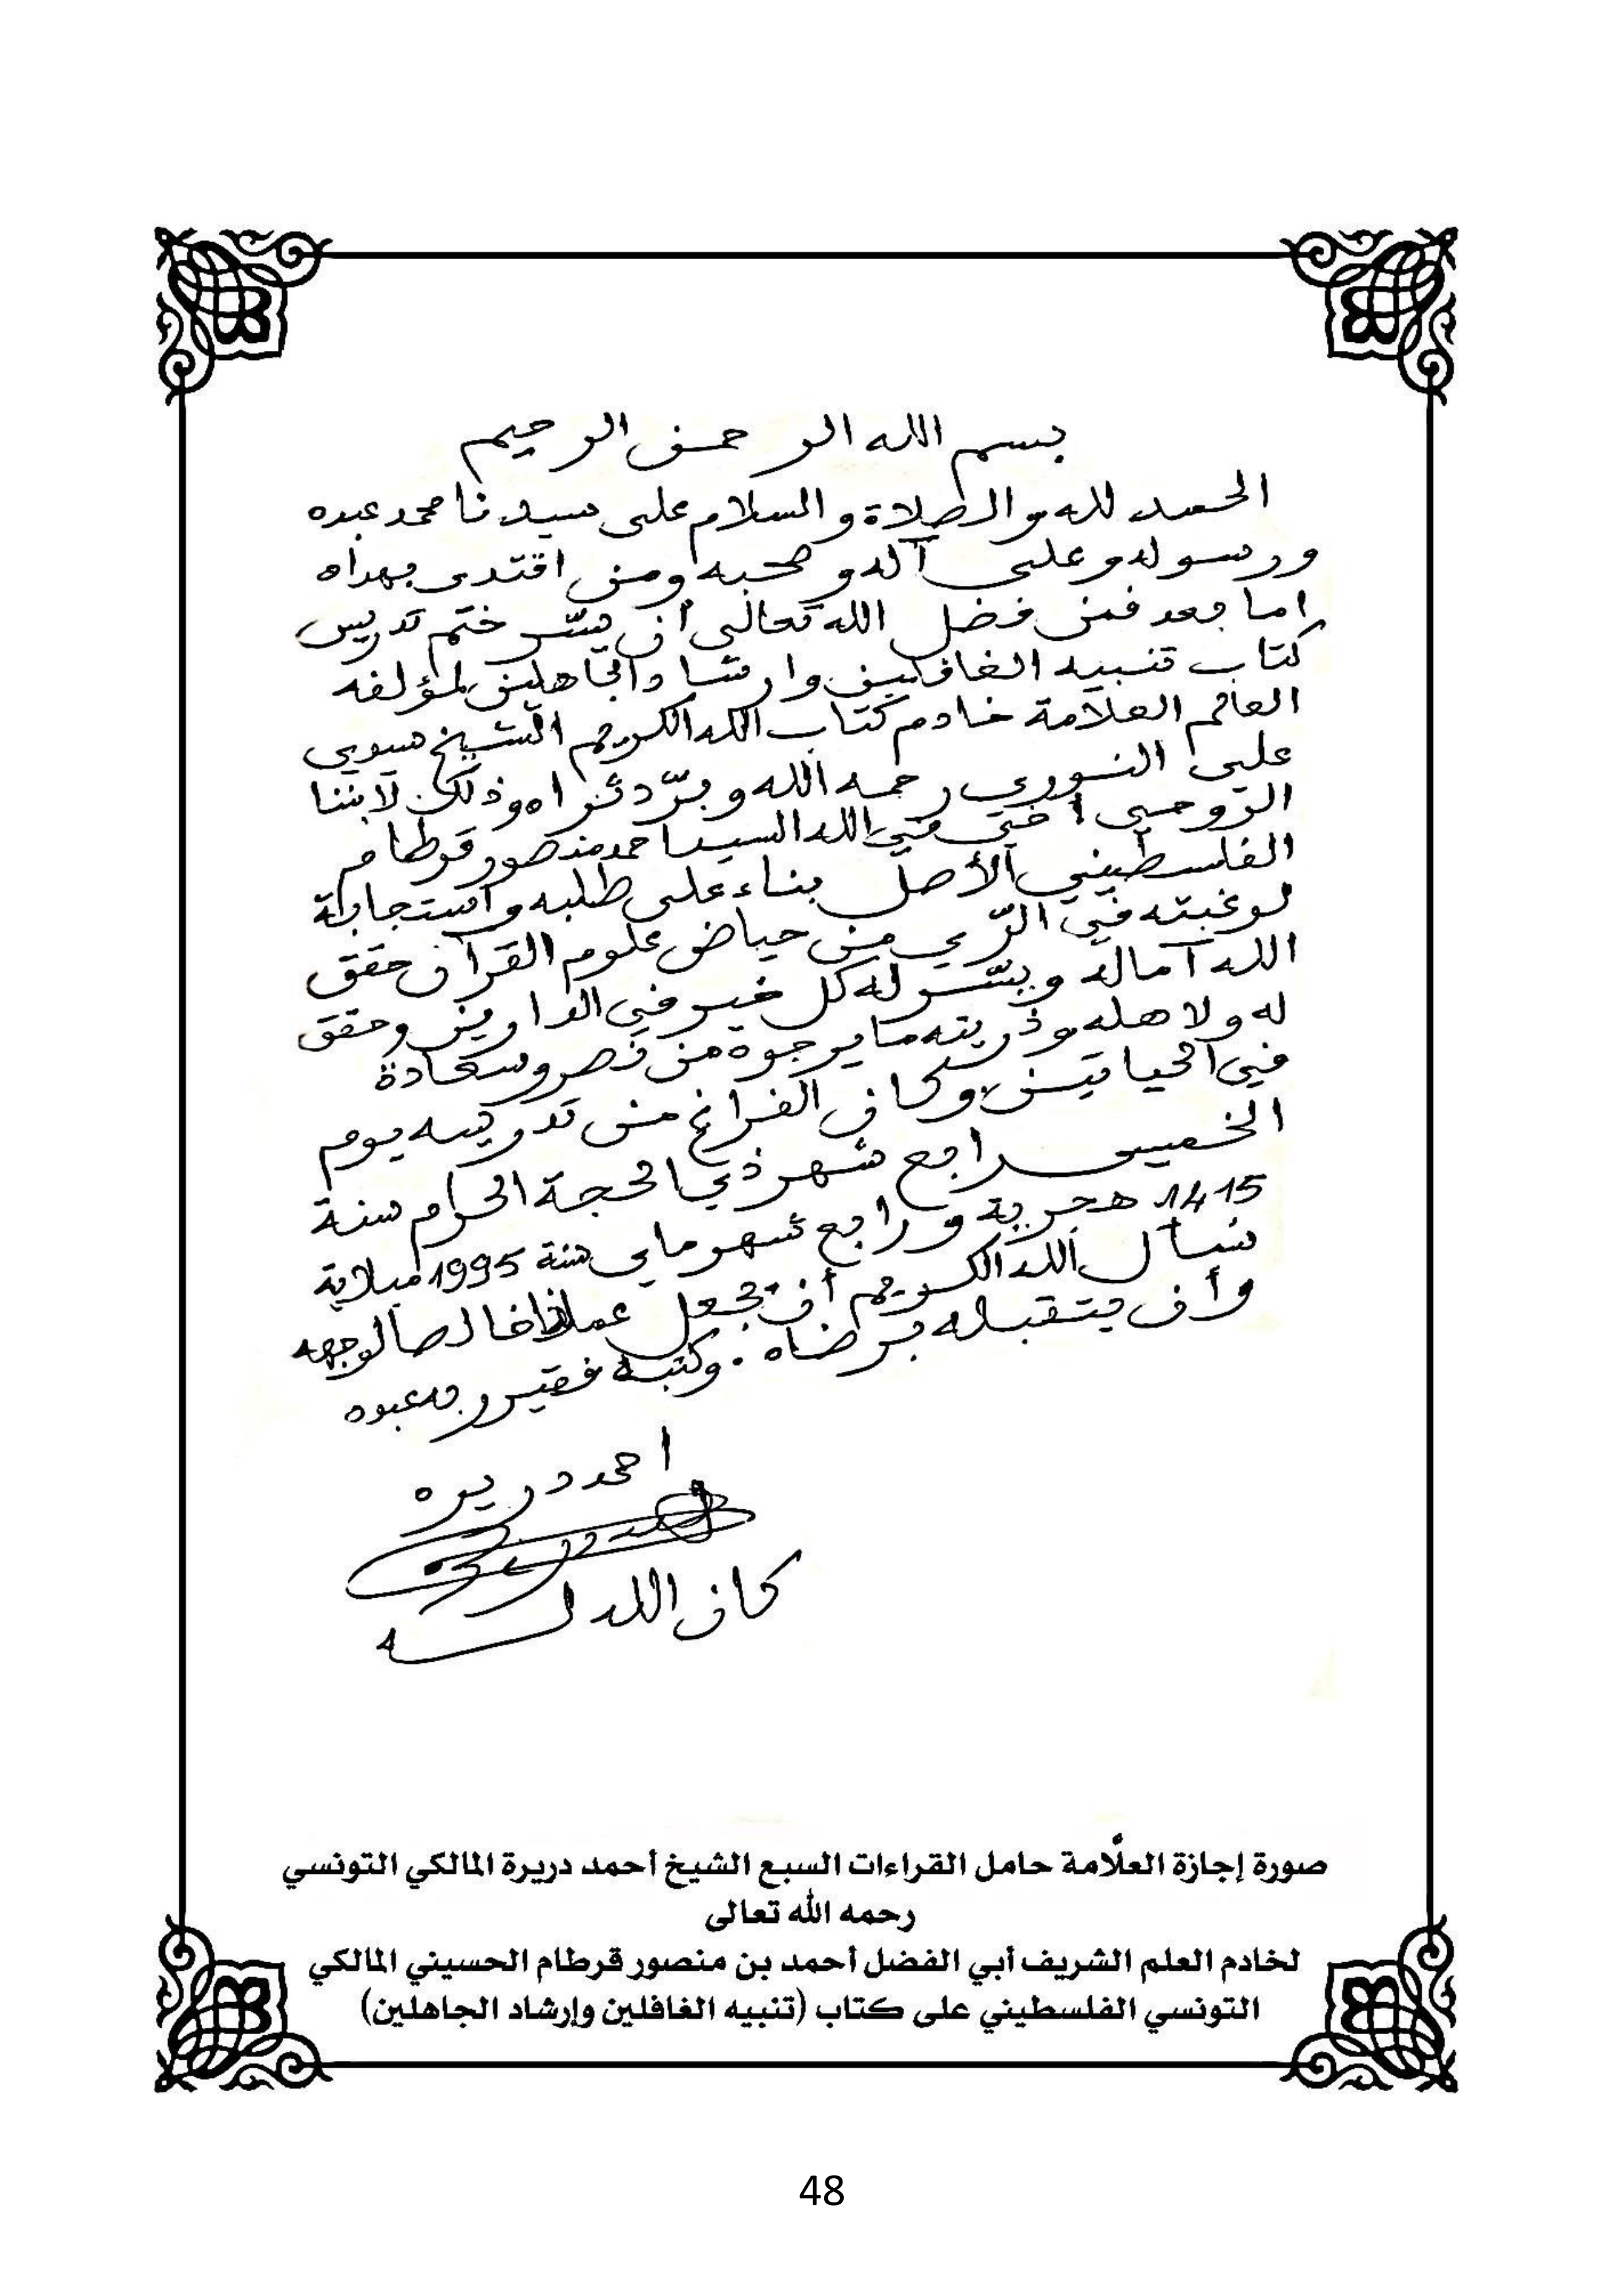 بسم الله الرحمن الرحيم
الحمد لله والصلاة والسلام على سيدنا محمد عبده
ورسوله وعلى آله وصحبه ومن اقتدى بهداه
اما بعد فمن فضل الله تعالى أن يسّر ختم تدريس
كتاب تنبيه الغافلين وارشاد الجاهلين لمؤلفه
العالم العلامة خادم كتاب الله الكريم الشيخ سيدي
علي النوري رحمه الله وبرّد ثراه وذلك لابننا
الروحي أخي في الله السيد احمد منصور قرطام
الفلسطيني الأصل بناء على طلبه واستجابة
لرغبته في الرّي من حياض علوم القرآن حقق
الله آماله ويسّر له كل خير في الدارين وحقق
له ولاهله وذريته ما يرجوه من نصر وسعادة
في الحياتين وكان الفراغ من تدريسه يوم
الخميس رابع شهر ذي الحجة الحرام سنة
1415 هجرية ورابع شهر ماي سنة 1995 ميلادية
نسأل الله الكريم أن يجعل عملنا خالصاً لوجهه
وأن يتقبله برضاه . وكتبه فقير ربه عبده
احمد دريره
كان الله له
صورة إجازة العلَّامة حامل القراءات السبع الشيخ أحمد دريرة المالكي التونسي
رحمه الله تعالى
لخادم العلم الشريف أبي الفضل أحمد بن منصور قرطام الحسيني المالكي
التونسي الفلسطيني على كتاب (تنبيه الغافلين وإرشاد الجاهلين)
48